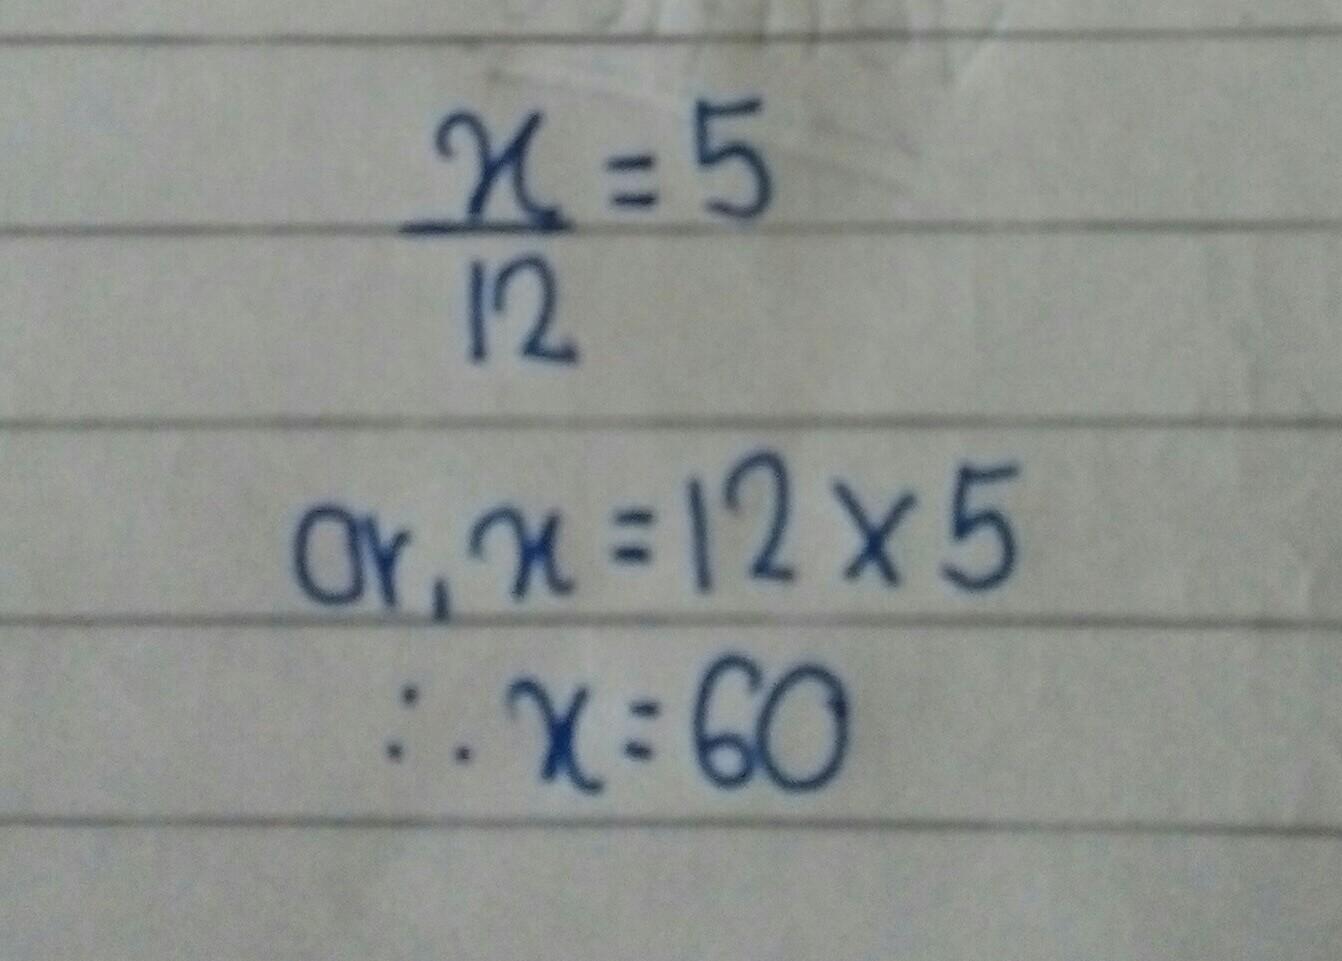 x/12 = 5
or, x = 12 × 5
∴ x = 60